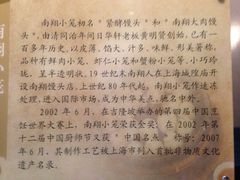 南翔小笼初名"紧酵馒头"和"南翔大肉馒
头"，由清同治年间日华轩老板黄明贤创始，已有一
百多年历史，以皮薄、馅大、汁多、味鲜、形美著称，
品种有鲜肉小笼、虾仁小笼和蟹粉小笼等，小巧玲
珑，呈半透明状。19世纪末南翔人在上海城隍庙开
设南翔馒头店，上世纪80年代起，南翔小笼作速冻
处理，进入国际市场，成为中华美点，驰名中外。
2002年6月，在吉隆坡举办的第四届中国烹
饪世界大赛上，南翔小笼荣获金奖，在2002年第
十二届中国厨师节又获"中国名点"称号；2007
年6月，其制作工艺被上海市列入首批非物质文化
遗产名录。